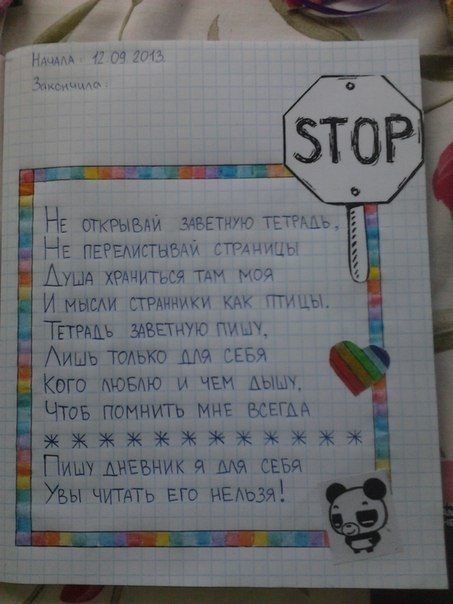 Начала: 12.09.2013.
Закончила:
STOP
Не открывай заветную тетрадь,
Не перелистывай страницы
Душа храниться там моя
И мысли странники как птицы.
Тетрадь заветную пишу,
Лишь только для себя
Кого люблю и чем дышу,
Чтоб помнить мне всегда
* * * * * * * * * * * *
Пишу дневник я для себя
Увы читать его нельзя!